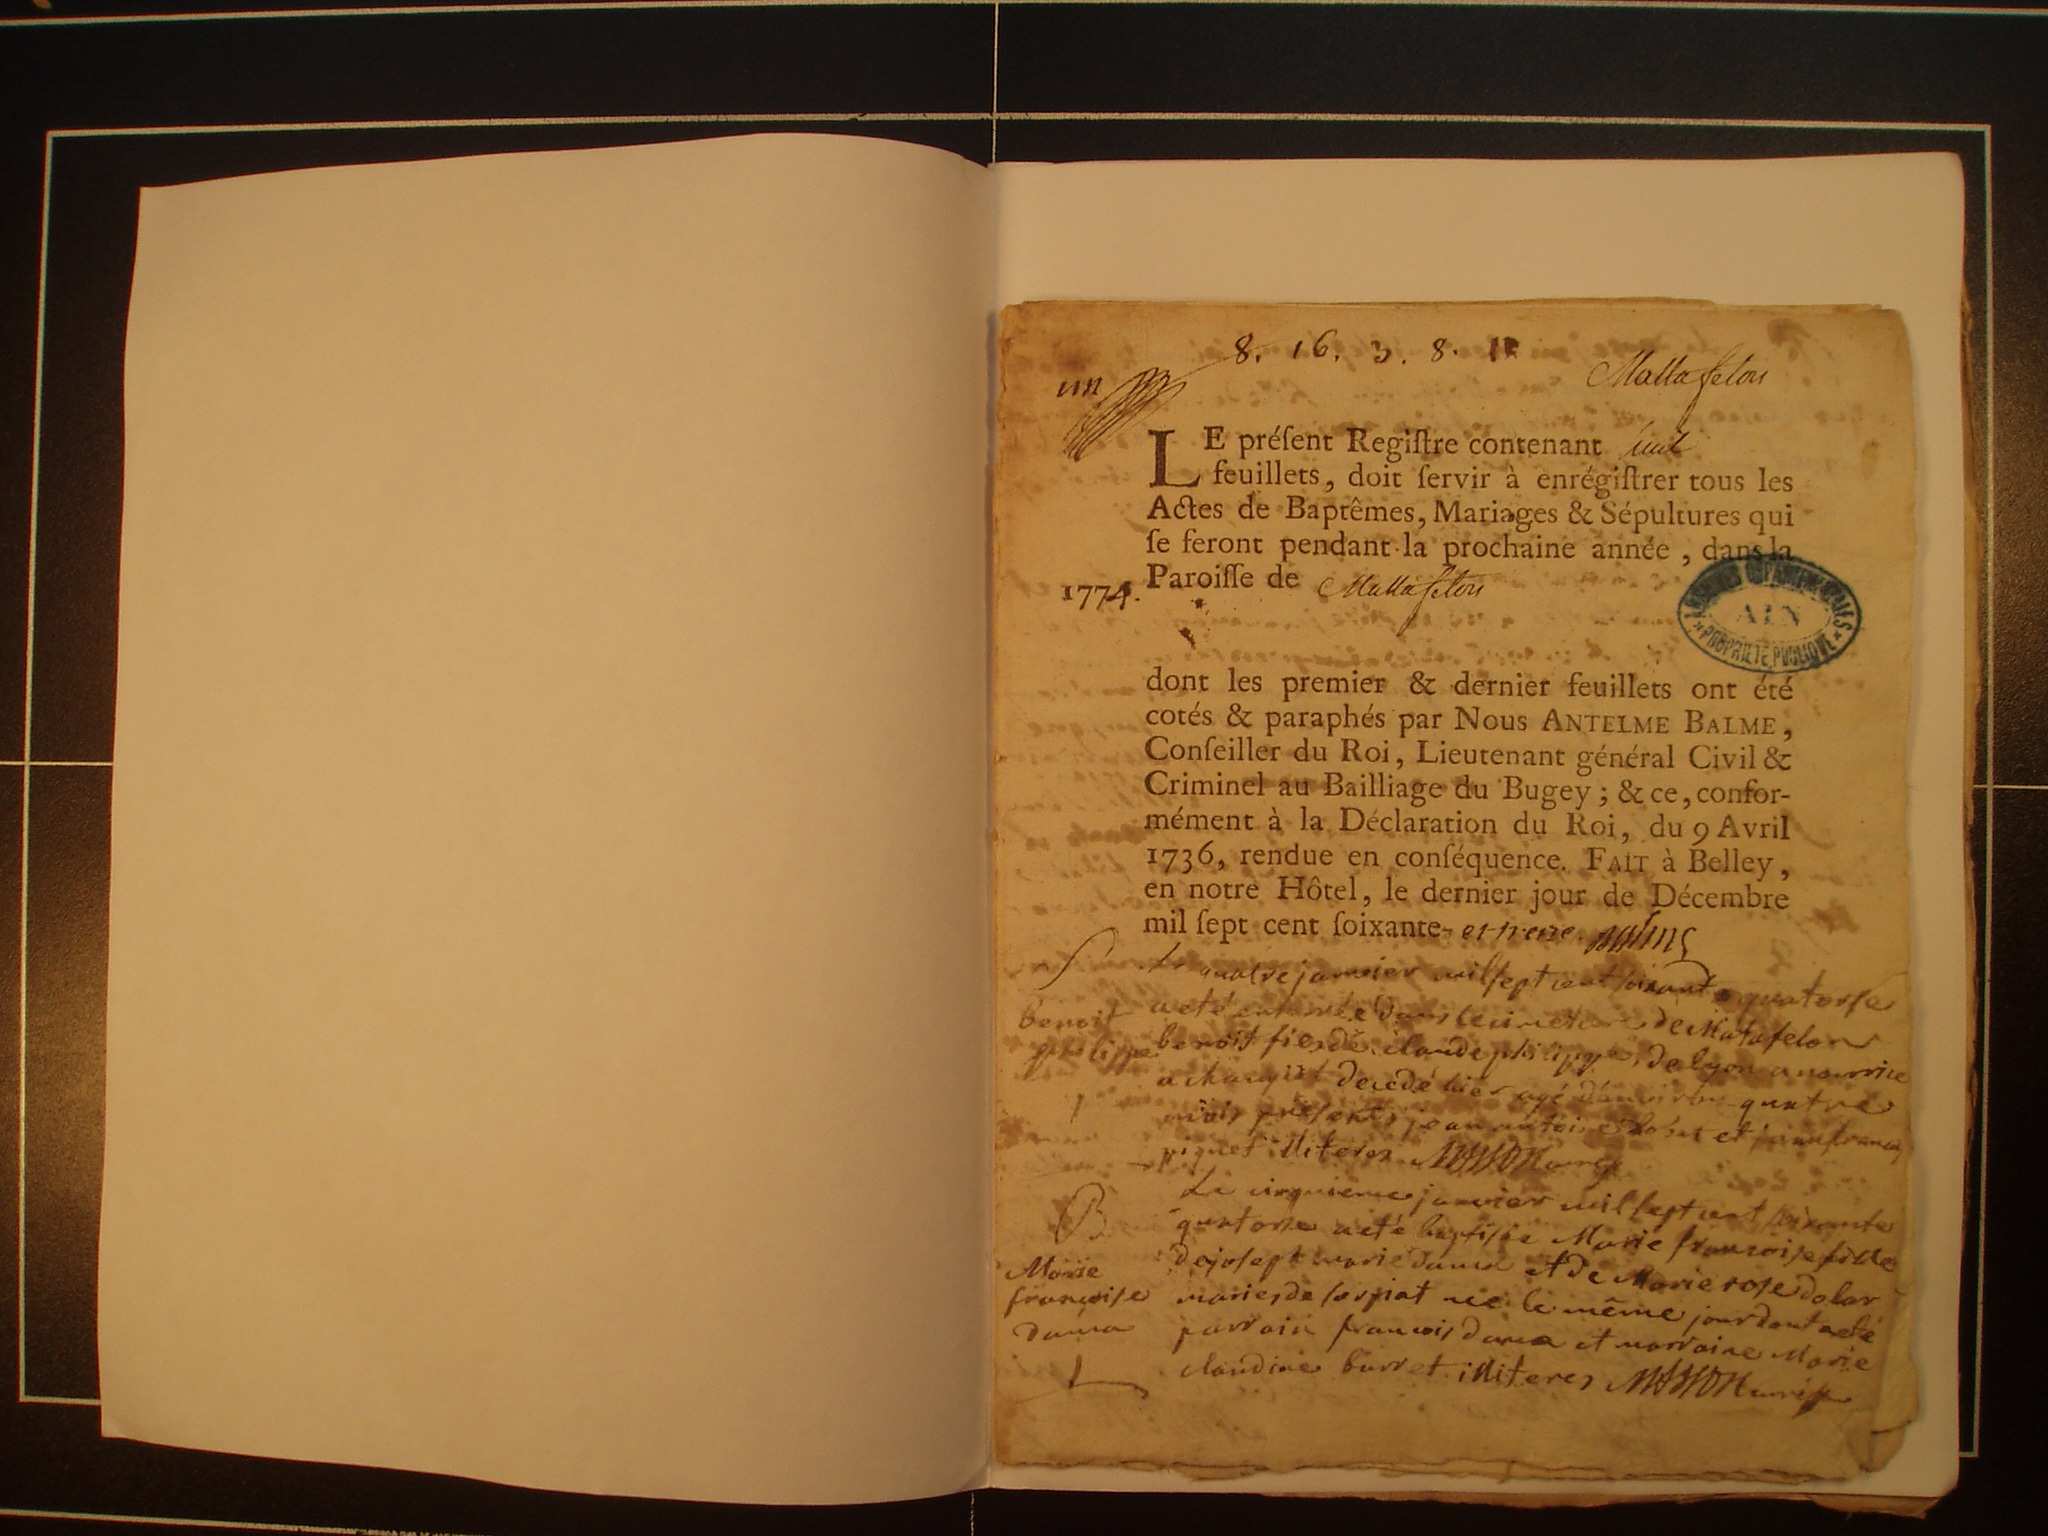 8. 16. 3. 8. 11
un
Mattafelon
LE préſent Regiſtre contenant huit
feuillets, doit ſervir à enrégiſtrer tous les
Actes de Baptêmes, Mariages & Sépultures qui
ſe feront pendant la prochaine année, dans la
1774. Paroiſſe de Mattafelon
ARCHIVES DÉPARTEMENTALES
AIN
* PROPRIÉTÉ PUBLIQUE *
dont les premier & dernier feuillets ont été
cotés & paraphés par Nous ANTELME BALME,
Conſeiller du Roi, Lieutenant général Civil &
Criminel au Bailliage du Bugey; & ce, confor-
mément à la Déclaration du Roi, du 9 Avril
1736, rendue en conſéquence. FAIT à Belley,
en notre Hôtel, le dernier jour de Décembre
mil ſept cent ſoixante- et treze. Balme
S
Le quatre janvier mil sept cent soixante quatorse
a eté enterré dans le cimetiere de Matafelon
benoit
philippe
benoit fils de claude philippe de lyon a nourrice
decedé hier agé d'environ quatre
mois presents jean antoine et jean francois
piquet illiteres MASSON
B
Le cinquieme janvier mil sept cent soixante
quatorse a eté baptisée Marie francoise fille
Marie
françoise
dama
de josept marie dama et de Marie rose dolar
mariés de née le même jour dont a eté
parrain francois dama et marraine Marie
claudine burret illiteres MASSON